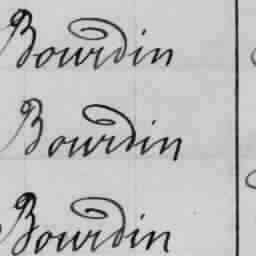 Bourdin
Bourdin
Bourdin